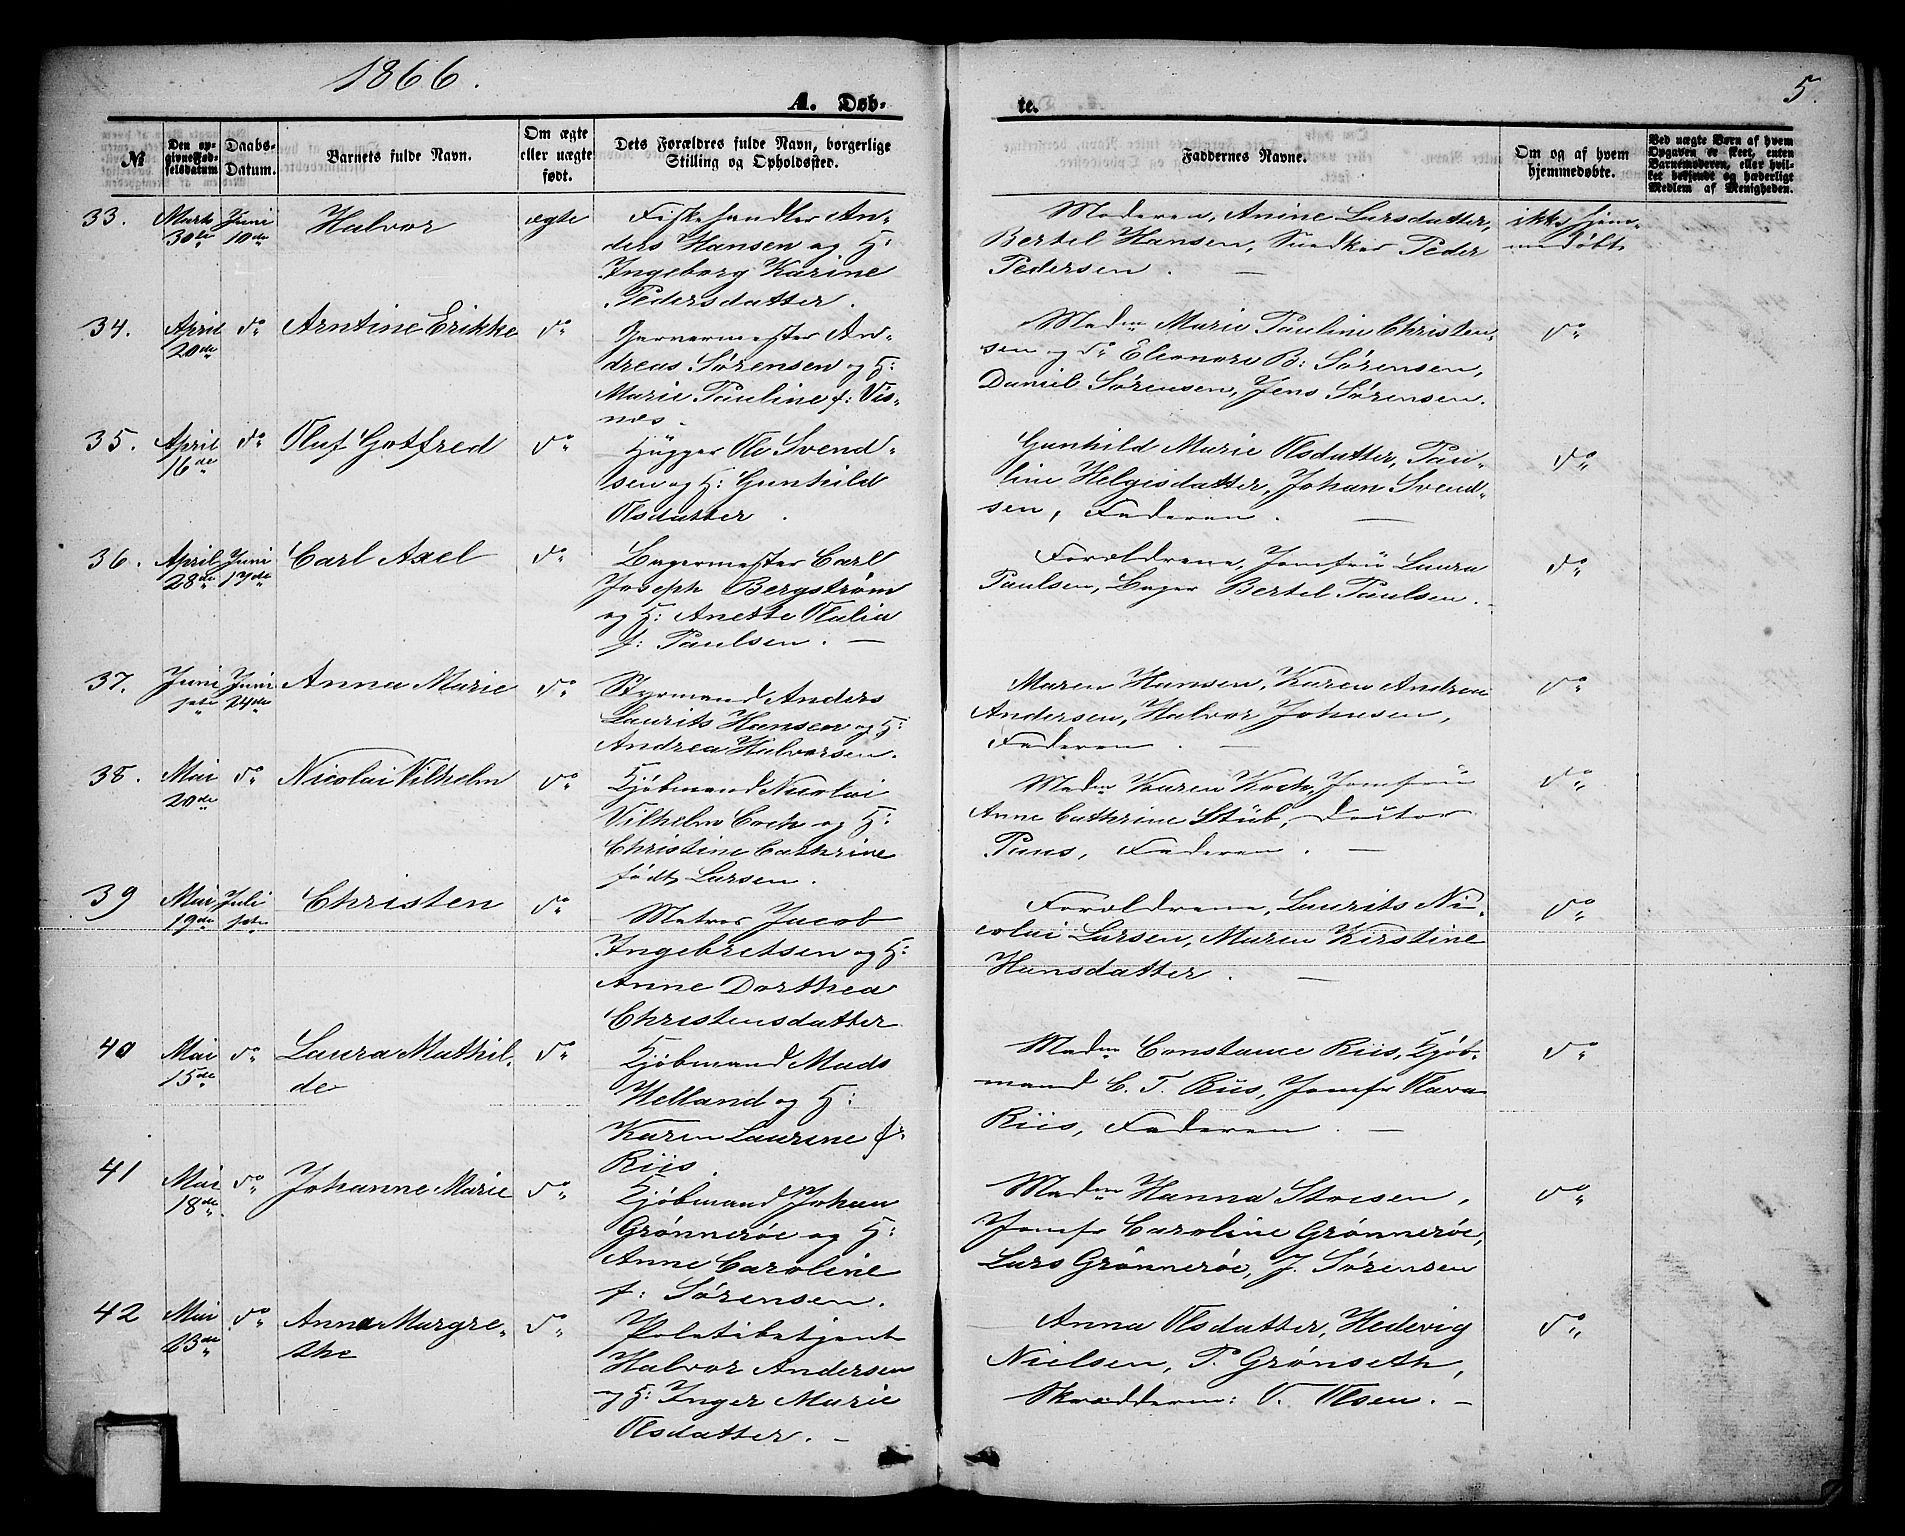 1866.
5.
A. Døb-
te.
№
Den opgivne Fødselsdatum
Daabs-Datum.
Barnets fulde Navn.
Om ægte eller uægte født.
Dets Forældres fulde Navn, borgerlige Stilling og Opholdssted.
Faddernes Navne.
Om og af hvem hjemmedøbt.
Ved uægte Børn af hvem Opgaven er skeet, enten Barnemoderen, eller hvilket bekjendt og hæderligt Medlem af Menigheden.
33. Marts 30te Juni 10de Halvor ægte Fiskehandler An-
ders Hansen og H:
Ingeborg Karine
Pedersdatter.
Moderen, Anine Larsdatter,
Bertel Hansen, Snedker Peder
Pedersen. —
ikke hjem-
medøbt
34. April 20de do Arntine Erikke do Garvermester An-
dreas Sørensen og H:
Marie Pauline f: Vis-
næs.
Madm Marie Pauline Christen-
sen og do Eleonore B: Sørensen,
Daniel Sørensen, Jens Sørensen.
do
35. April 16de do Oluf Gotfred do Hugger Ole Svend-
sen og H: Gunhild
Olsdatter.
Gunhild Marie Olsdatter, Pau-
line Helgisdatter, Johan Svend-
sen, Faderen. —
do
36. April 28de Juni 17de Carl Axel do Bagermester Carl
Joseph Bergstrøm
og H: Anette Olalia
f: Paulsen. —
Forældrene, Jomfru Laura
Paulsen, Bager Bertel Paulsen.
do
37. Juni 1ste Juni 24de Anna Marie do Styrmand Anders
Laurits Hansen og H:
Andrea Halvorsen.
Maren Hansen, Karen Andrea
Andersen, Halvor Johnsen,
Faderen. —
do
38. Mai 20de do Nicolai Vilhelm do Kjøbmand Nicolai
Vilhelm Coch og H:
Christine Cathrine
født Larsen.
Madm Karen Koch, Jomfru
Anne Cathrine Stub, Doctor
Paus, Faderen. —
do
39 Mai 19de Juli 1ste Christen do Matros Jacob
Ingebretsen og H:
Anne Dorthea
Christensdatter
Forældrene, Laurits Ni-
colai Larsen, Maren Kirstine
Hansdatter. —
do
40 Mai 15de do Laura Mathil-
de
do Kjøbmand Mads
Helland og H:
Karen Laurine f:
Riis.
Madm Constance Riis, Kjøb-
mand C. T. Riis, Jomfr Olava
Riis, Faderen. —
do
41 Mai 18de do Johanne Marie do Kjøbmand Johan
Grønnerøe og H:
Anne Caroline
f: Sørensen.
Madm Hanna Stoesen,
Jomfr Caroline Grønnerøe,
Lars Grønnerøe, J. Sørensen
do
42 Mai 23de do Anna Margre-
the
do Politibetjent
Halvor Andersen
og H: Inger Marie
Olsdatter. —
Anna Olsdatter, Hedevig
Nielsen, P. Grønseth,
Skrædderen: O. Olsen. —
do